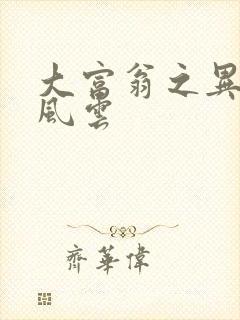 大富翁之異
風雲
齊華偉